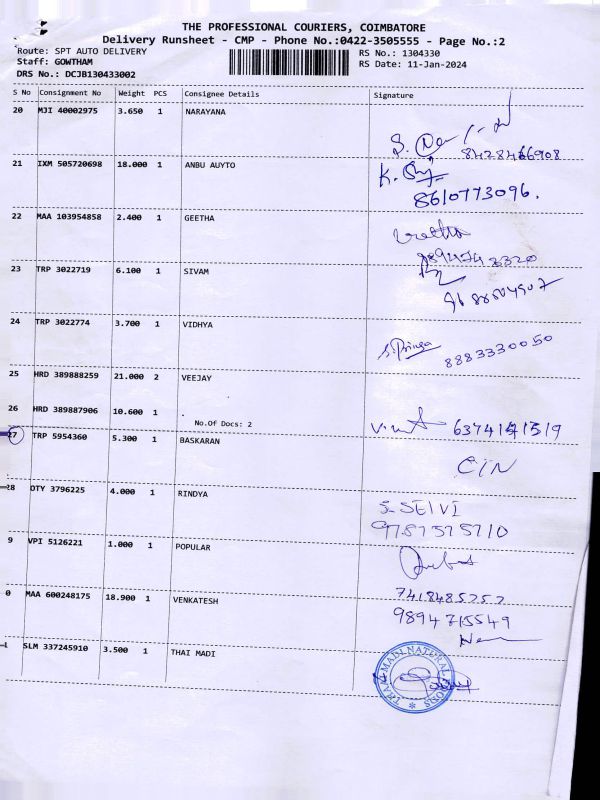 THE PROFESSIONAL COURIERS, COIMBATORE
Delivery Runsheet - CMP - Phone No.:0422-3505555 - Page No.:2
Route: SPT AUTO DELIVERY RS No.: 1304330
Staff: GOWTHAM RS Date: 11-Jan-2024
DRS No.: DCJB130433002
S No Consignment No Weight PCS Consignee Details Signature
20 MJI 40002975 3.650 1 NARAYANA
8428466908
21 IXM 505720698 18.000 1 ANBU AUYTO
8610773096.
22 MAA 103954858 2.400 1 GEETHA
Geetha
23 TRP 3022719 6.100 1 SIVAM
24 TRP 3022774 3.700 1 VIDHYA
S. Priya 8883330050
25 HRD 389888259 21.000 2 VEEJAY
26 HRD 389887906 10.600 1
No.Of Docs: 2
27 TRP 5954360 5.300 1 BASKARAN
CIN
28 OTY 3796225 4.000 1 RINDYA
S. SELVI
9 VPI 5126221 1.000 1 POPULAR
7418485252
0 MAA 600248175 18.900 1 VENKATESH
9894715549
1 SLM 337245910 3.500 1 THAI MADI
THAAI MADI NATURAL